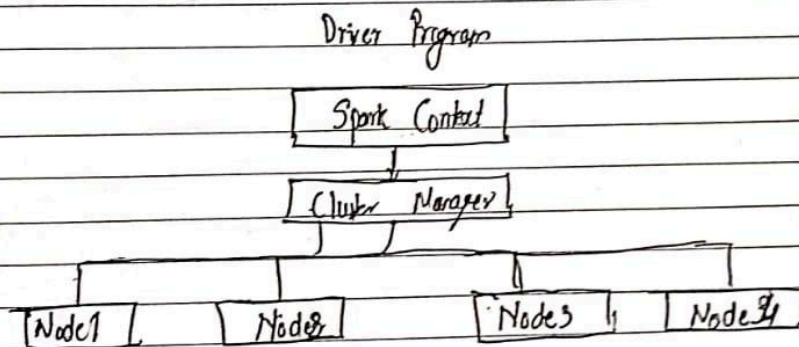 Driver Program
Spark Context
Cluster Manager
Node1 Node2 Node3 Node4